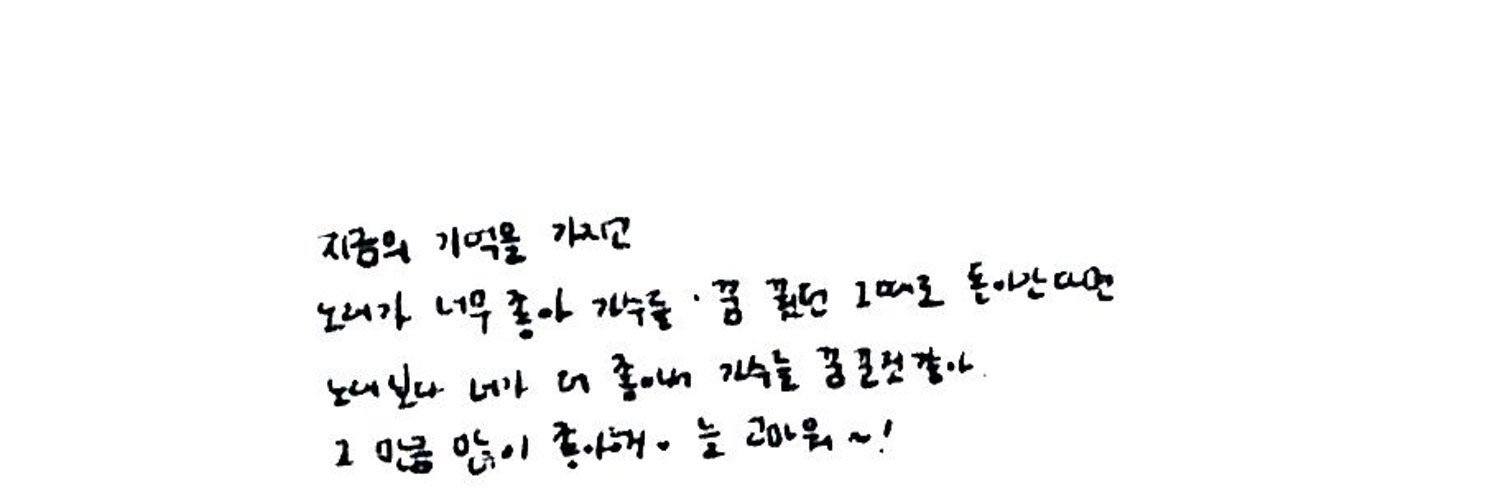 지금의 기억을 가지고
노래가 너무 좋아 가수를 꿈 꿨던 그때로 돌아간다면
노래보다 네가 더 좋아서 가수를 꿈꿀것 같아.
그 만큼 많이 좋아해. 늘 고마워~!